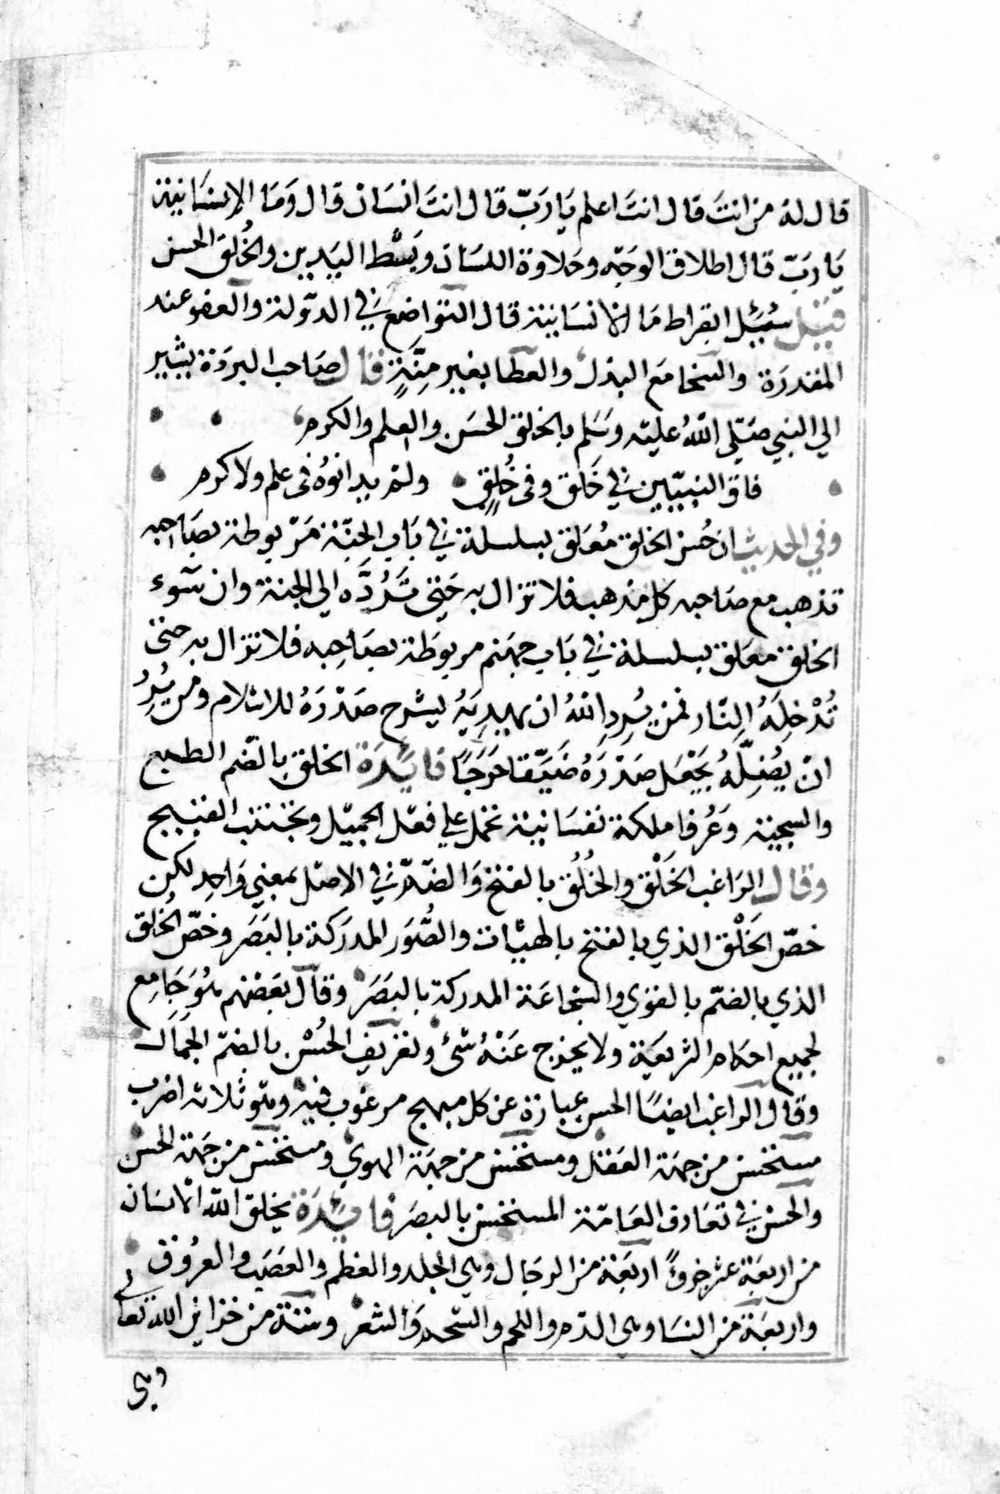 قال له من انت قال انت اعلم يا رب قال انت انسان قال وما الانسانية
يا رب قال اطلاق الوجه وحلاوة اللسان وبسط اليدين والخُلق الحسن
قيل سئل ابقراط ما الانسانية قال التواضع في الدولة والعفو عند
المقدرة والسخا مع البذل والعطا بغير مِنَّةٍ قال صاحب البردة يشير
الي النبي صَلّي اللهُ عليه وسلم بالخلق الحسن والعلم والكرم
فاق النبيّين في خَلق وفي خُلقٍ ولم يدانوهُ في علم ولا كرم
وفي الحديث ان حُسن الخلق مُعَلق بسلسلة في باب الجنّة مربوطة بصاحبه
تذهب مع صاحبه كل مذهب فلا تزال به حتي تَرُدَّه الي الجنة وان سوء
الخلق معلق بسلسلة في باب جهنم مربوطة بصاحبه فلا تزال به حتي
تُدْخِلَهُ النّار فمن يُرِدِ اللهُ ان يهديَهُ يشرح صَدْرَهُ للاسلام ومن يُرِدْ
ان يُضِلَّهُ يَجْعَل صَدْرَهُ ضَيّقا حَرَجًا فايدة الخلق بالضم الطبع
والسجية وعُرفا ملكة نفسانية تحمل علي فعل الجميل وتجتنب القبيح
وقال الراغب الخَلْق والخُلُق بالفتح والضمّ في الاصل بمعني واحد لكن
خصّ الخَلْق الذي بالفتح بالهيئات والصُّوَر المدركة بالبصر وخصّ الخُلق
الذي بالضم بالقوي والشجاعة المدركة بالبصَر وقال بعضهم هُوَ جَامِع
لجميع احكام الشريعة ولا يخرج عَنهُ شئ وتعريف الحُسْن بالضم الجمال
وقال الراغب ايضًا الحسن عبارة عن كل مبهج مرغوب فيه وهو ثلاث اضرب
مستحسن من جهة العقل ومستحسن من جهة الهوي ومستحسن من جهة الحسن
والحسن في تعارف العامّة المستحسن بالبصر فايدة يخلق الله الانسان
من اربعة عشر جزءً اربعَة من الرجال وهي الجلد والعظم والعصَب والعروق
واربعة من النسا وهي الدم واللحم والشحم والشعر وستة من خزاين الله تعالي
وهي